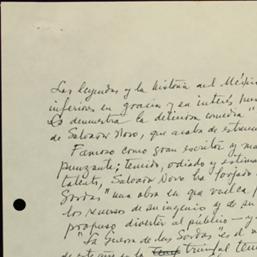 Las leyendas y la historia del Méxic
inferiores en gracia y en interés
lo demuestra la deliciosa comedia "
de Salvador Novo, que acaba de
Famoso como gran escritor y
punzante; temido, odiado y estima
talento, Salvador Novo ha forjado
Gordas" una obra en que vuelca
los recursos de su ingenio y de su
propuso divertir al público — y
"La Guerra de las Gordas" es el